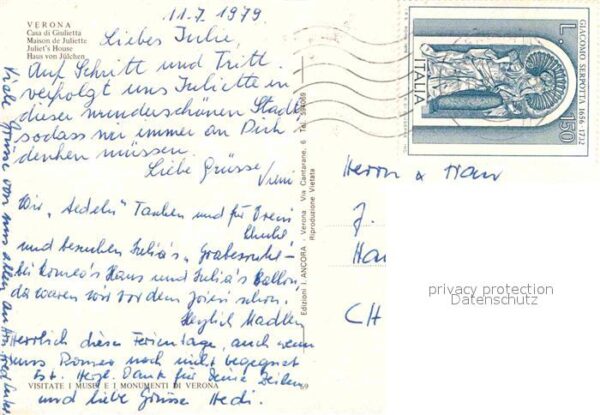 VERONA
Casa di Giulietta
Maison de Juliette
Juliet's House
Haus von Jülchen
11.7.1979
Liebes Julie
Auf Schritt und Tritt
verfolgt uns Juliette in
dieser wunderschönen Stadt
sodass wir immer an Dich
denken müssen.
Liebe Grüsse
Vreni
Wir "Tauben und für Vreni
und besuchen Julia's "
bei Romeo's Haus und Julia's Balkon
da waren wir vor dem schon.
Herzlich
Herrlich diese Ferientage, auch wenn
uns Romeo noch nicht begegnet
ist. Herzl. Dank für Deine Zeilen
und liebe Grüsse Hedi.
VISITATE I MUSEI E I MONUMENTI DI VERONA
Viele Grüsse von uns allen an
Edizioni I. ANCORA - Verona Via Cantarane, 6 Tel.
Riproduzione Vietata
L. 150
ITALIA
GIACOMO SERPOTTA 1656-1732
Herrn & Frau
J.
CH
privacy protection
Datenschutz